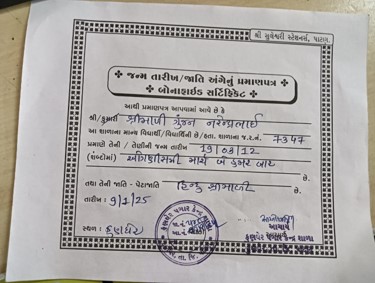 શ્રી ભુવનેશ્વરી સ્ટેશનર્સ, પાટણ.
જન્મ તારીખ/જાતિ અંગેનું પ્રમાણપત્ર
બોનાફાઈડ સર્ટિફિકેટ
આથી પ્રમાણપત્ર આપવામાં આવે છે કે
શ્રી/કુમારી શ્રીમાળી ગુંજન નરેન્દ્રભાઈ
આ શાળાના માન્ય વિદ્યાર્થી/વિદ્યાર્થિની છે/હતા. શાળાના જ.ર.નં. 7347
પ્રમાણે તેની / તેણીની જન્મ તારીખ 19/03/12
(શબ્દોમાં) ઓગણીસમી માર્ચ બે હજાર બાર
છે.
તથા તેની જાતિ - પેટાજાતિ હિન્દુ શ્રીમાળી છે.
તારીખ : 9/1/25
સ્થળ : કુણઘેર
આચાર્ય
કુણઘેર પગાર કેન્દ્ર શાળા